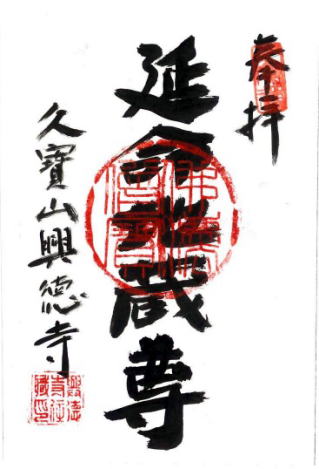 奉拝
延命地蔵尊
久寶山興德寺